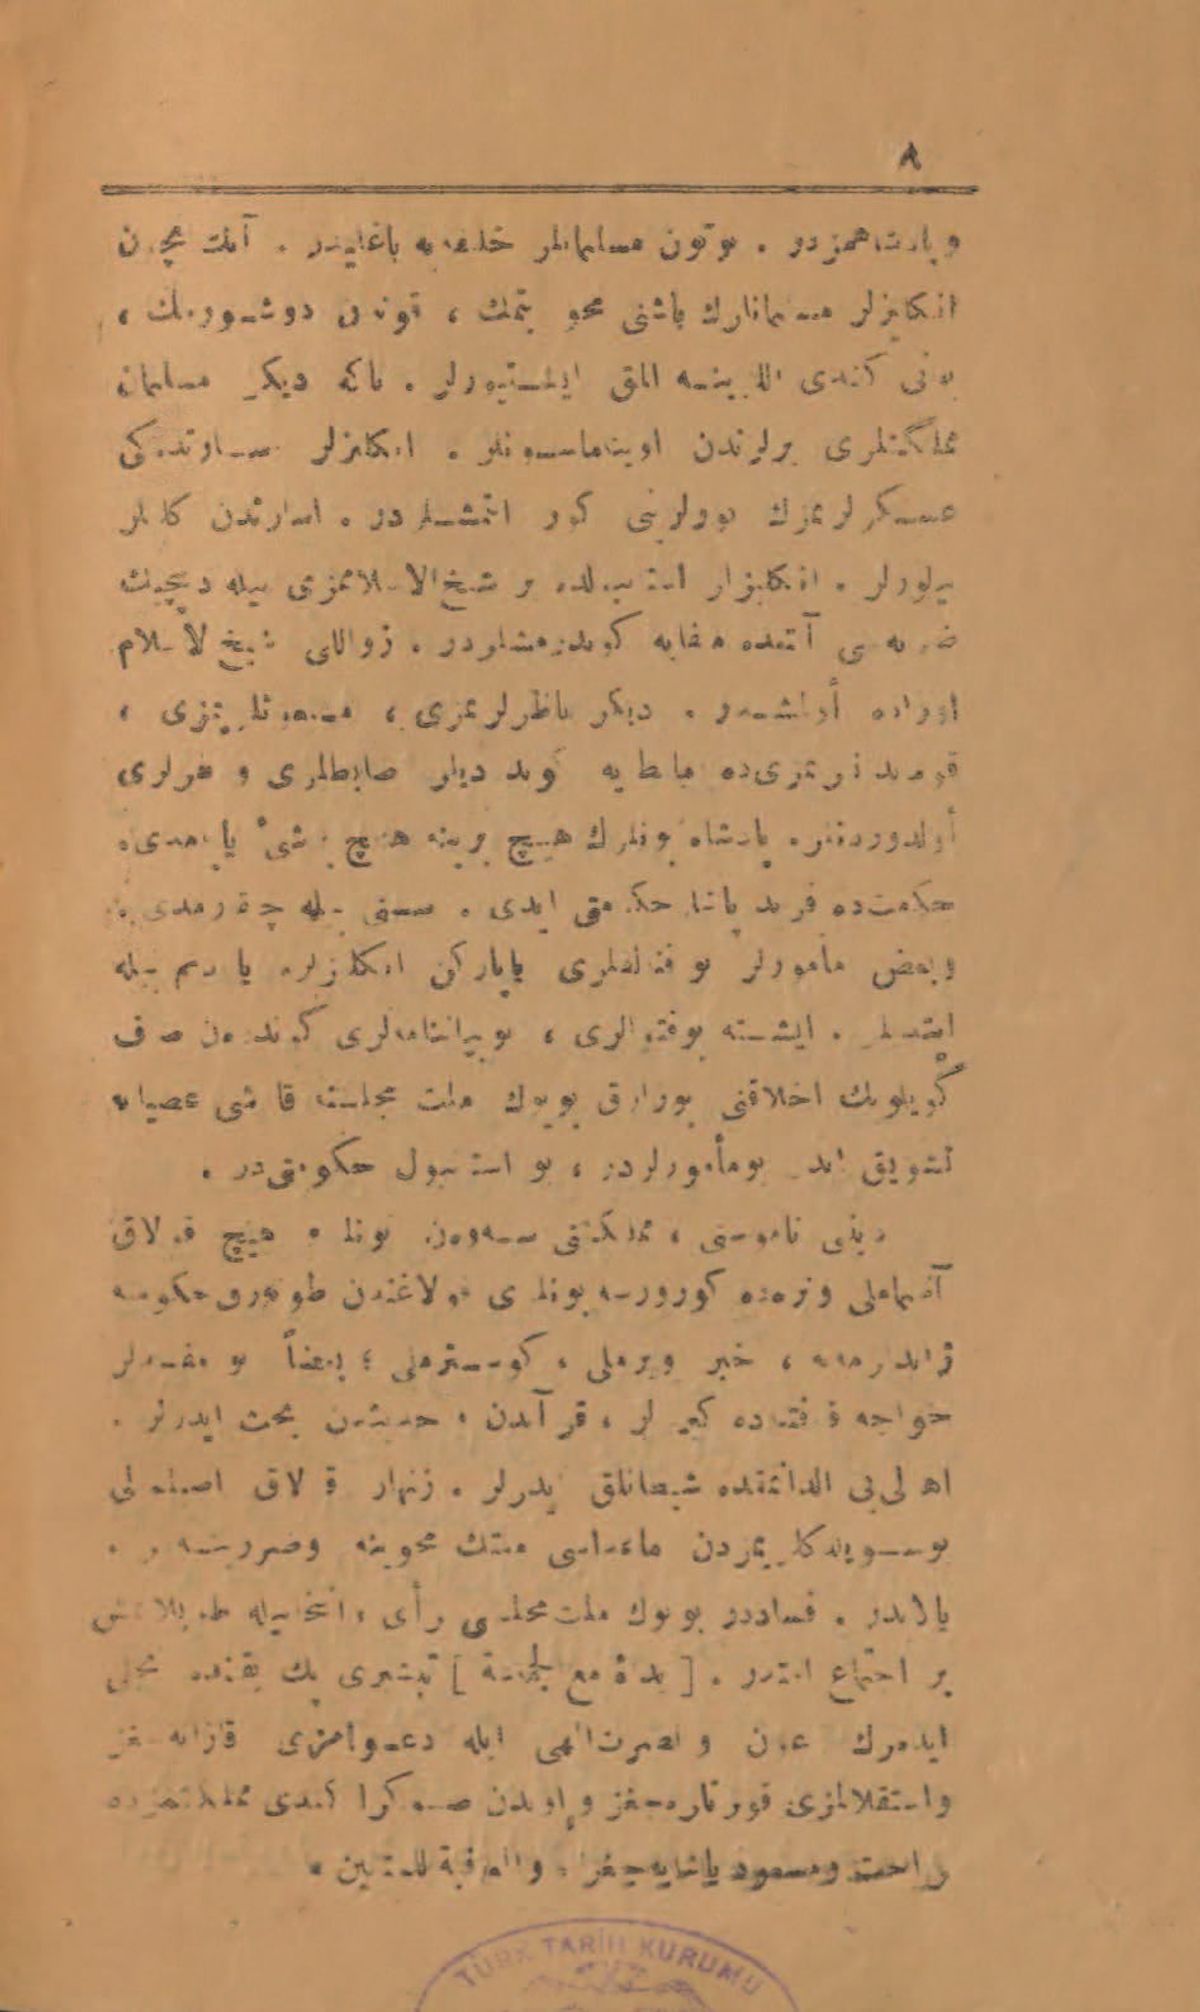 ٨
و پادشاهمزدر . بوتون مسلمانلر خلیفه یه باغلیدر . آنك ایچون
انكلیزلر مسلمانلرك باشنی محو ایتمك ، قوتدن دوشورمك ،
یعنی كندی اللرینه المق ایستیورلر . تاكه دیكر مسلمان
مملكتلری یرلرندن اویناماسونلر . انكلیزلر
عسكرلریمزك یوللرینی كور ایتمشلردر . اسارتدن كلنلر
بیلیورلر . انكلیزلر استانبولده بر شیخ الاسلاممزی بیله دیپچیك
ضربه سی آلتنده منفایه كوندرمشلردر . زواللی شیخ الاسلام
اوراده أولمشدر . دیكر ناظرلریمزی ، مبعوثلریمزی ،
قوماندانلریمزی ده مالطه یه كوندردیلر ضابطلری و نفرلری
أولدوردیلر . پادشاه بونلرك هیچ برینه هیچ بر شی یاپامدی .
حكومت ده فرید پاشا حكومتی ایدی . سسنی بیله چیقارمدی
وبعض مأمورلر بو فنالقلری یاپاركن انكلیزلره یاردیم بیله
ایتدیلر . ایشته بو فتوالری ، بو بیاننامه لری كوندروب صاف
كویلونك اخلاقنی بوزارق بویوك ملت مجلسنه قارشی عصیانه
تشویق ایدن بو مأمورلردر ، بو استانبول حكومتی در .
دینی ناموسنی ، مملكتنی سەون بونلره هیچ قولاق
آصمامالی و نرەده كورورسه بونلری قولاغندن طوتەرق حكومته
ژاندارمەیه ، خبر ویرملی ، كوسترملی ؛ بعضاً بو مفسدلر
خواجه قیافتنده كزرلر ، قرآندن ، حدیثدن بحث ایدرلر .
اهالی یی الداتمقده شیطانلق ایدرلر . زنهار قولاق اصمامالی
بو سویلدكلریمزدن ماعداسی ملتك محوینه وضررینه در .
یالاندر . فساددر بویوك ملت مجلسی رأی و انتخابیله طوپلانمش
بر اجتماع امتدر . [ یداللّٰه مع الجماعة ] تبشیری پك یقینده تجلی
ایدەرك عون و نصرت الهی ایله دعوامزی قازانەجغز
واستقلالمزی قورتارەجغز و اوندن صوكرا كندی مملكتمزده
راحت ومسعود یاشایەجغز . والعاقبة للمتقین .
TÜRK TARİH KURUMU